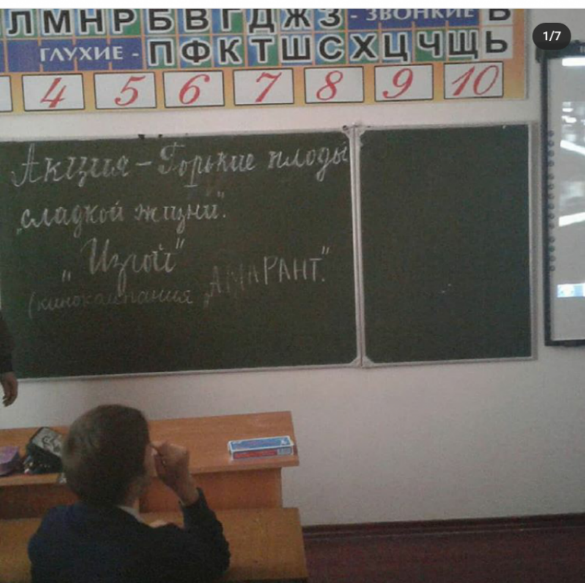 1/7
Л М Н Р Б В Г Д Ж З - ЗВОНКИЕ Ь
ГЛУХИЕ - П Ф К Т Ш С Х Ц Ч Щ Ь
4 5 6 7 8 9 10
Акция - Горькие плоды
„сладкой жизни".
„Изгой"
(кинокампания „АМАРАНТ."